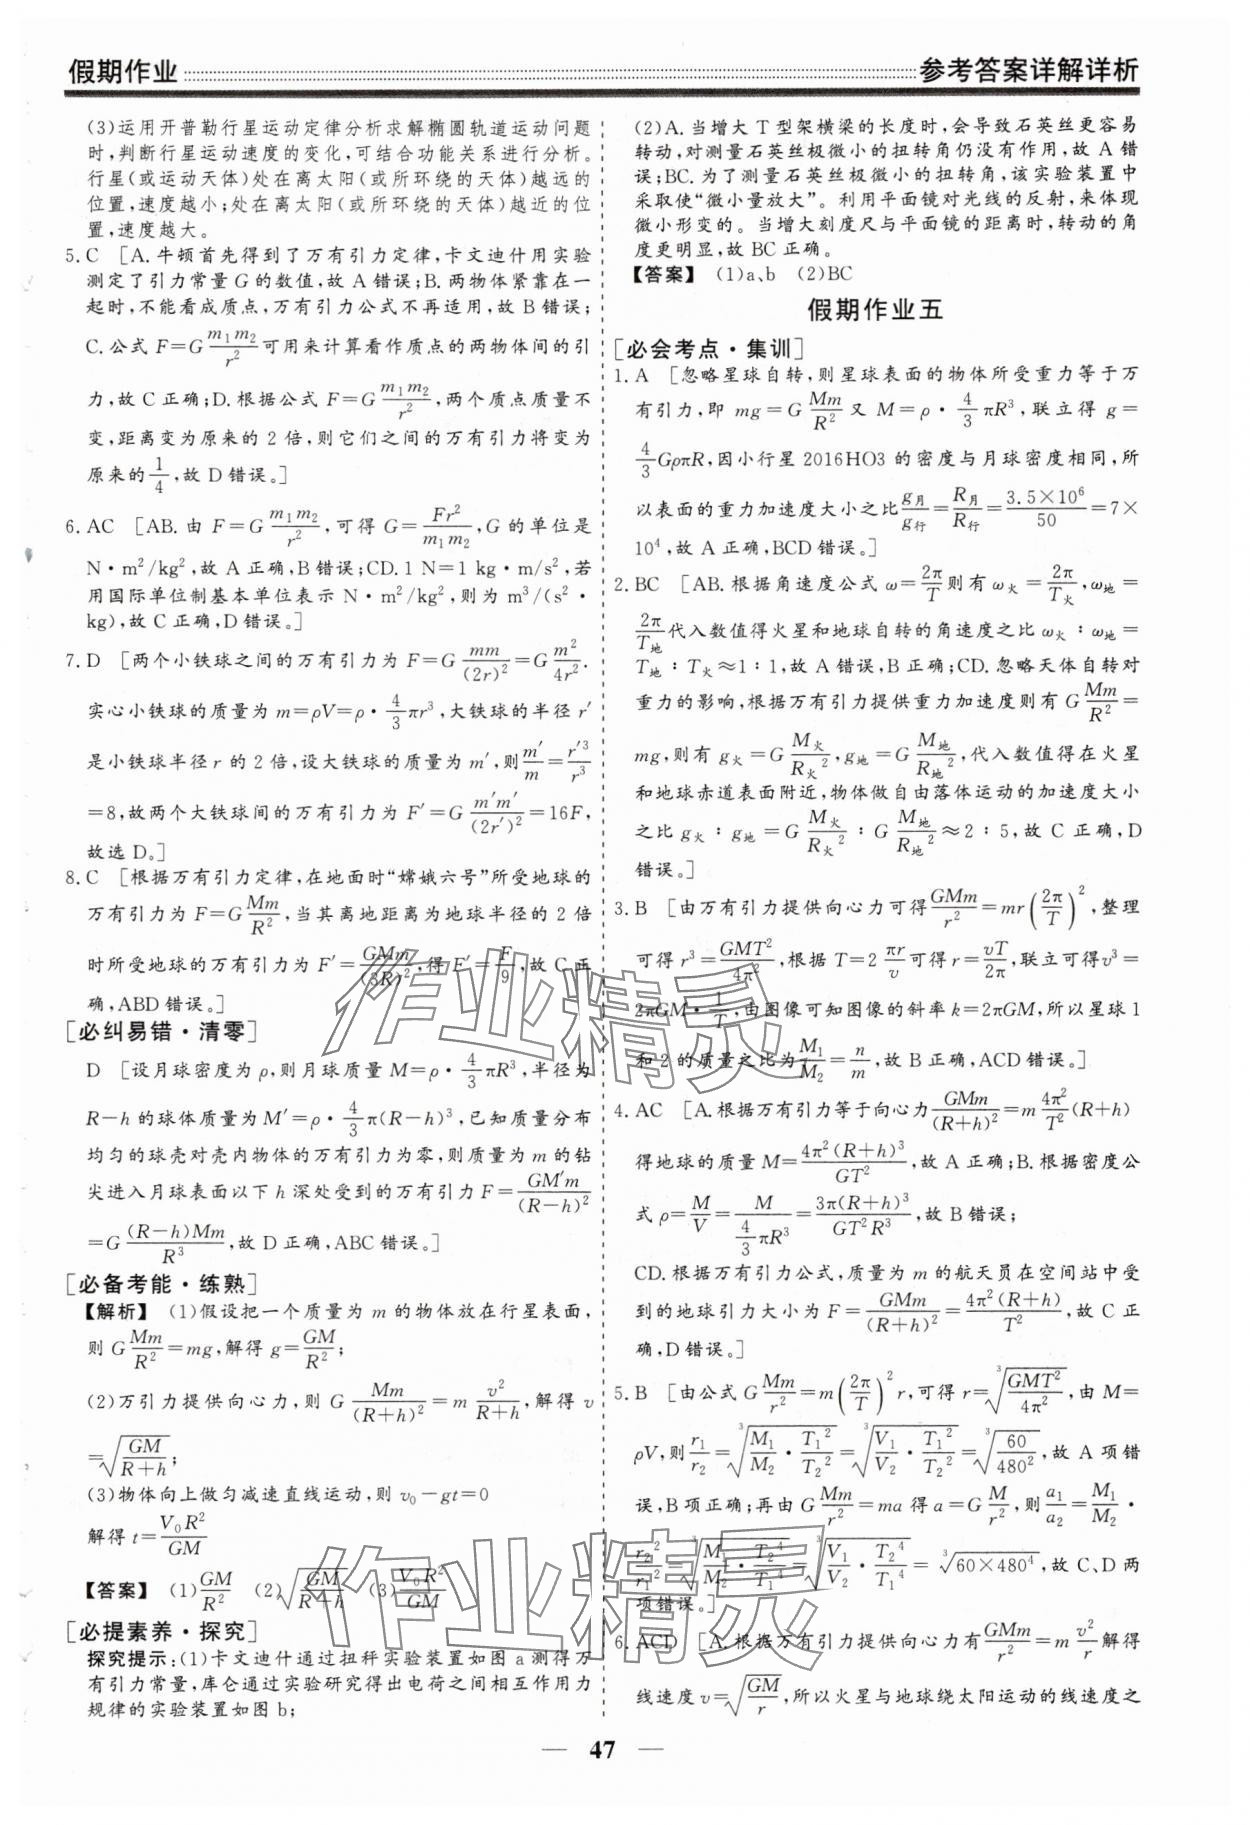 假期作业
参考答案详解详析
(3)运用开普勒行星运动定律分析求解椭圆轨道运动问题
时,判断行星运动速度的变化,可结合功能关系进行分析。
行星(或运动天体)处在离太阳(或所环绕的天体)越远的
位置,速度越小;处在离太阳(或所环绕的天体)越近的位
置,速度越大。
5.C [A.牛顿首先得到了万有引力定律,卡文迪什用实验
测定了引力常量G的数值,故A错误;B.两物体紧靠在一
起时,不能看成质点,万有引力公式不再适用,故B错误;
C.公式 F=G m₁m₂/r² 可用来计算看作质点的两物体间的引
力,故C正确;D.根据公式 F=G m₁m₂/r²,两个质点质量不
变,距离变为原来的2倍,则它们之间的万有引力将变为
原来的1/4,故D错误。]
6.AC [AB.由 F=G m₁m₂/r²,可得 G=Fr²/m₁m₂,G的单位是
N·m²/kg²,故A正确,B错误;CD.1 N=1 kg·m/s²,若
用国际单位制基本单位表示 N·m²/kg²,则为 m³/(s²·
kg),故C正确,D错误。]
7.D [两个小铁球之间的万有引力为 F=G mm/(2r)²=G m²/4r².
实心小铁球的质量为 m=ρV=ρ·4/3 πr³,大铁球的半径 r′
是小铁球半径r的2倍,设大铁球的质量为m′,则 m′/m=r′³/r³
=8,故两个大铁球间的万有引力为 F′=G m′m′/(2r′)²=16F,
故选D。]
8.C [根据万有引力定律,在地面时“嫦娥六号”所受地球的
万有引力为 F=G Mm/R²,当其离地距离为地球半径的2倍
时所受地球的万有引力为 F′=GMm/(3R)²,得 F′=F/9,故C正
确,ABD错误。]
[必纠易错·清零]
D [设月球密度为ρ,则月球质量 M=ρ·4/3 πR³,半径为
R-h的球体质量为 M′=ρ·4/3 π(R-h)³,已知质量分布
均匀的球壳对壳内物体的万有引力为零,则质量为m的钻
尖进入月球表面以下h深处受到的万有引力 F=GM′m/(R-h)²
=G (R-h)Mm/R³,故D正确,ABC错误。]
[必备考能·练熟]
【解析】 (1)假设把一个质量为m的物体放在行星表面,
则 G Mm/R²=mg,解得 g=GM/R²;
(2)万引力提供向心力,则 G Mm/(R+h)²=m v²/(R+h),解得 v
=√(GM/(R+h));
(3)物体向上做匀减速直线运动,则 v₀-gt=0
解得 t=V₀R²/GM
【答案】 (1)GM/R² (2)√(GM/(R+h)) (3)V₀R²/GM
[必提素养·探究]
探究提示:(1)卡文迪什通过扭秤实验装置如图a测得万
有引力常量,库仑通过实验研究得出电荷之间相互作用力
规律的实验装置如图b;
(2)A.当增大T型架横梁的长度时,会导致石英丝更容易
转动,对测量石英丝极微小的扭转角仍没有作用,故A错
误;BC.为了测量石英丝极微小的扭转角,该实验装置中
采取使“微小量放大”。利用平面镜对光线的反射,来体现
微小形变的。当增大刻度尺与平面镜的距离时,转动的角
度更明显,故BC正确。
【答案】 (1)a、b (2)BC
假期作业五
[必会考点·集训]
1.A [忽略星球自转,则星球表面的物体所受重力等于万
有引力,即 mg=G Mm/R² 又 M=ρ·4/3 πR³,联立得 g=
4/3 GρπR,因小行星2016HO3的密度与月球密度相同,所
以表面的重力加速度大小之比 g月/g行=R月/R行=3.5×10⁶/50=7×
10⁴,故A正确,BCD错误。]
2.BC [AB.根据角速度公式 ω=2π/T 则有 ω火=2π/T火,ω地=
2π/T地 代入数值得火星和地球自转的角速度之比 ω火∶ω地=
T地∶T火≈1∶1,故A错误,B正确;CD.忽略天体自转对
重力的影响,根据万有引力提供重力加速度则有 G Mm/R²=
mg,则有 g火=G M火/R火²,g地=G M地/R地²,代入数值得在火星
和地球赤道表面附近,物体做自由落体运动的加速度大小
之比 g火∶g地=G M火/R火²∶G M地/R地²≈2∶5,故C正确,D
错误。]
3.B [由万有引力提供向心力可得 GMm/r²=mr(2π/T)²,整理
可得 r³=GMT²/4π²,根据 T=2 πr/v 可得 r=vT/2π,联立可得 v³=
2πGM·1/T,由图像可知图像的斜率 k=2πGM,所以星球1
和2的质量之比为 M₁/M₂=n/m,故B正确,ACD错误。]
4.AC [A.根据万有引力等于向心力 GMm/(R+h)²=m 4π²/T²(R+h)
得地球的质量 M=4π²(R+h)³/GT²,故A正确;B.根据密度公
式 ρ=M/V=M/(4/3 πR³)=3π(R+h)³/GT²R³,故B错误;
CD.根据万有引力公式,质量为m的航天员在空间站中受
到的地球引力大小为 F=GMm/(R+h)²=4π²(R+h)/T²,故C正
确,D错误。]
5.B [由公式 G Mm/r²=m(2π/T)²r,可得 r=∛(GMT²/4π²),由 M=
ρV,则 r₁/r₂=∛(M₁/M₂·T₁²/T₂²)=∛(V₁/V₂·T₁²/T₂²)=∛(60/480²),故A项错
误,B项正确;再由 G Mm/r²=ma 得 a=G M/r²,则 a₁/a₂=M₁/M₂·
r₂²/r₁²=∛(M₁/M₂·T₂⁴/T₁⁴)=∛(V₁/V₂·T₂⁴/T₁⁴)=∛(60×480⁴),故C、D两
项错误。]
6.ACD [A.根据万有引力提供向心力有 GMm/r²=m v²/r 解得
线速度 v=√(GM/r),所以火星与地球绕太阳运动的线速度之
— 47 —
作业精灵
作业精灵